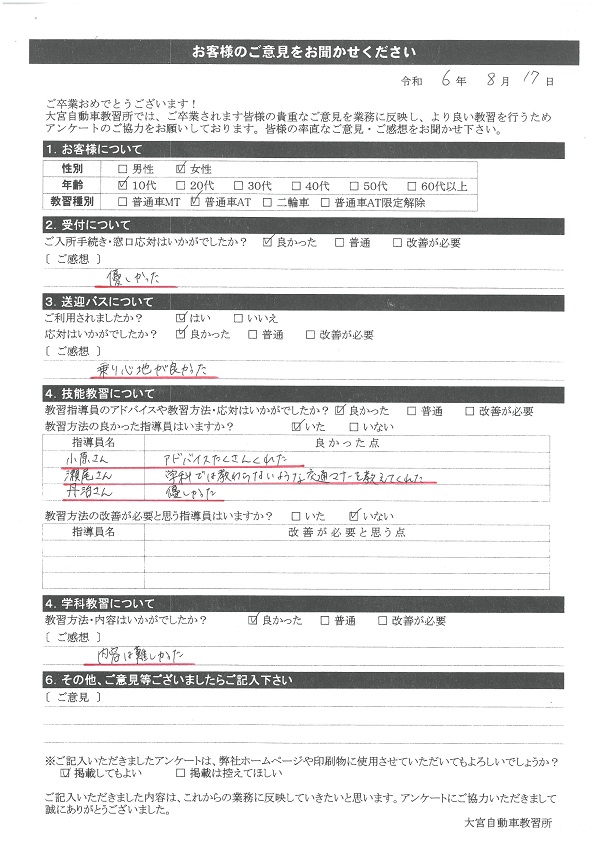 お客様のご意見をお聞かせください
令和 6年 8月 17日
ご卒業おめでとうございます！
大宮自動車教習所では、ご卒業されます皆様の貴重なご意見を業務に反映し、より良い教習を行うため
アンケートのご協力をお願いしております。皆様の率直なご意見・ご感想をお聞かせ下さい。
1. お客様について
性別 □ 男性 ☑ 女性
年齢 ☑ 10代 □ 20代 □ 30代 □ 40代 □ 50代 □ 60代以上
教習種別 □ 普通車MT ☑ 普通車AT □ 二輪車 □ 普通車AT限定解除
2. 受付について
ご入所手続き・窓口応対はいかがでしたか？ ☑ 良かった □ 普通 □ 改善が必要
〔 ご感想 〕
優しかった
3. 送迎バスについて
ご利用されましたか？ ☑ はい □ いいえ
応対はいかがでしたか？ ☑ 良かった □ 普通 □ 改善が必要
〔 ご感想 〕
乗り心地が良かった
4. 技能教習について
教習指導員のアドバイスや教習方法・応対はいかがでしたか？ ☑ 良かった □ 普通 □ 改善が必要
教習方法の良かった指導員はいますか？ ☑ いた □ いない
指導員名 良かった点
小原さん アドバイスたくさんくれた
瀬尾さん 学科では教わらないような交通マナーを教えてくれた
丹治さん 優しかった
教習方法の改善が必要と思う指導員はいますか？ □ いた ☑ いない
指導員名 改善が必要と思う点
4. 学科教習について
教習方法・内容はいかがでしたか？ ☑ 良かった □ 普通 □ 改善が必要
〔 ご感想 〕
内容は難しかった
6. その他、ご意見等ございましたらご記入下さい
〔 ご意見 〕
※ご記入いただきましたアンケートは、弊社ホームページや印刷物に使用させていただいてもよろしいでしょうか？
☑ 掲載してもよい □ 掲載は控えてほしい
ご記入いただきました内容は、これからの業務に反映していきたいと思います。アンケートにご協力いただきまして
誠にありがとうございました。
大宮自動車教習所